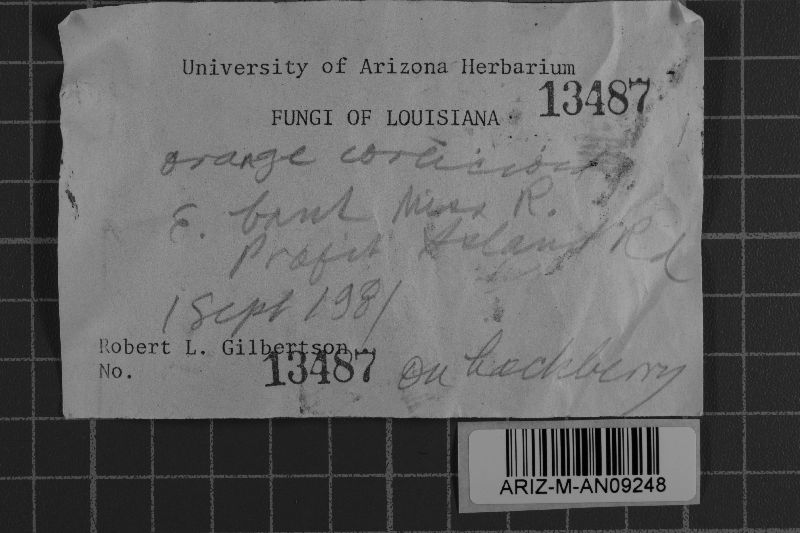 University of Arizona Herbarium
13487
FUNGI OF LOUISIANA
orange corticioid
E. bank Miss R.
Profit Island Rd
1 Sept 1981
Robert L. Gilbertson
No. 13487 On hackberry
ARIZ-M-AN09248